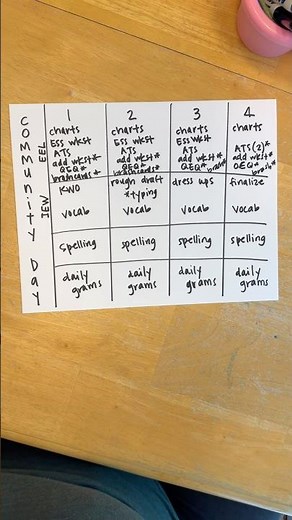 COMMUNITY DAY
EEL
IEW
1 2 3 4
charts
ESS wkst
ATS
add wkst*
QEQ*
braincards*
charts
ESS wkst
ATS
add wkst*
QEQ*
braincards*
charts
ESS wkst
ATS
add wkst*
QEQ*
charts
ATS(2)*
add wkst*
QEQ*
KWO
vocab
rough draft
*typing
vocab
dress ups
vocab
finalize
vocab
spelling spelling spelling spelling
daily
grams
daily
grams
daily
grams
daily
grams